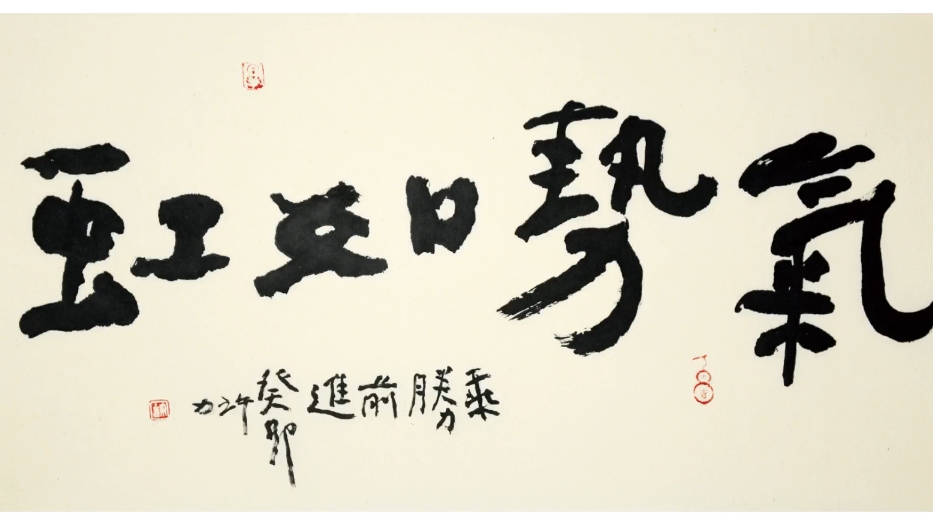 氣勢如虹
乘勝前進
癸卯